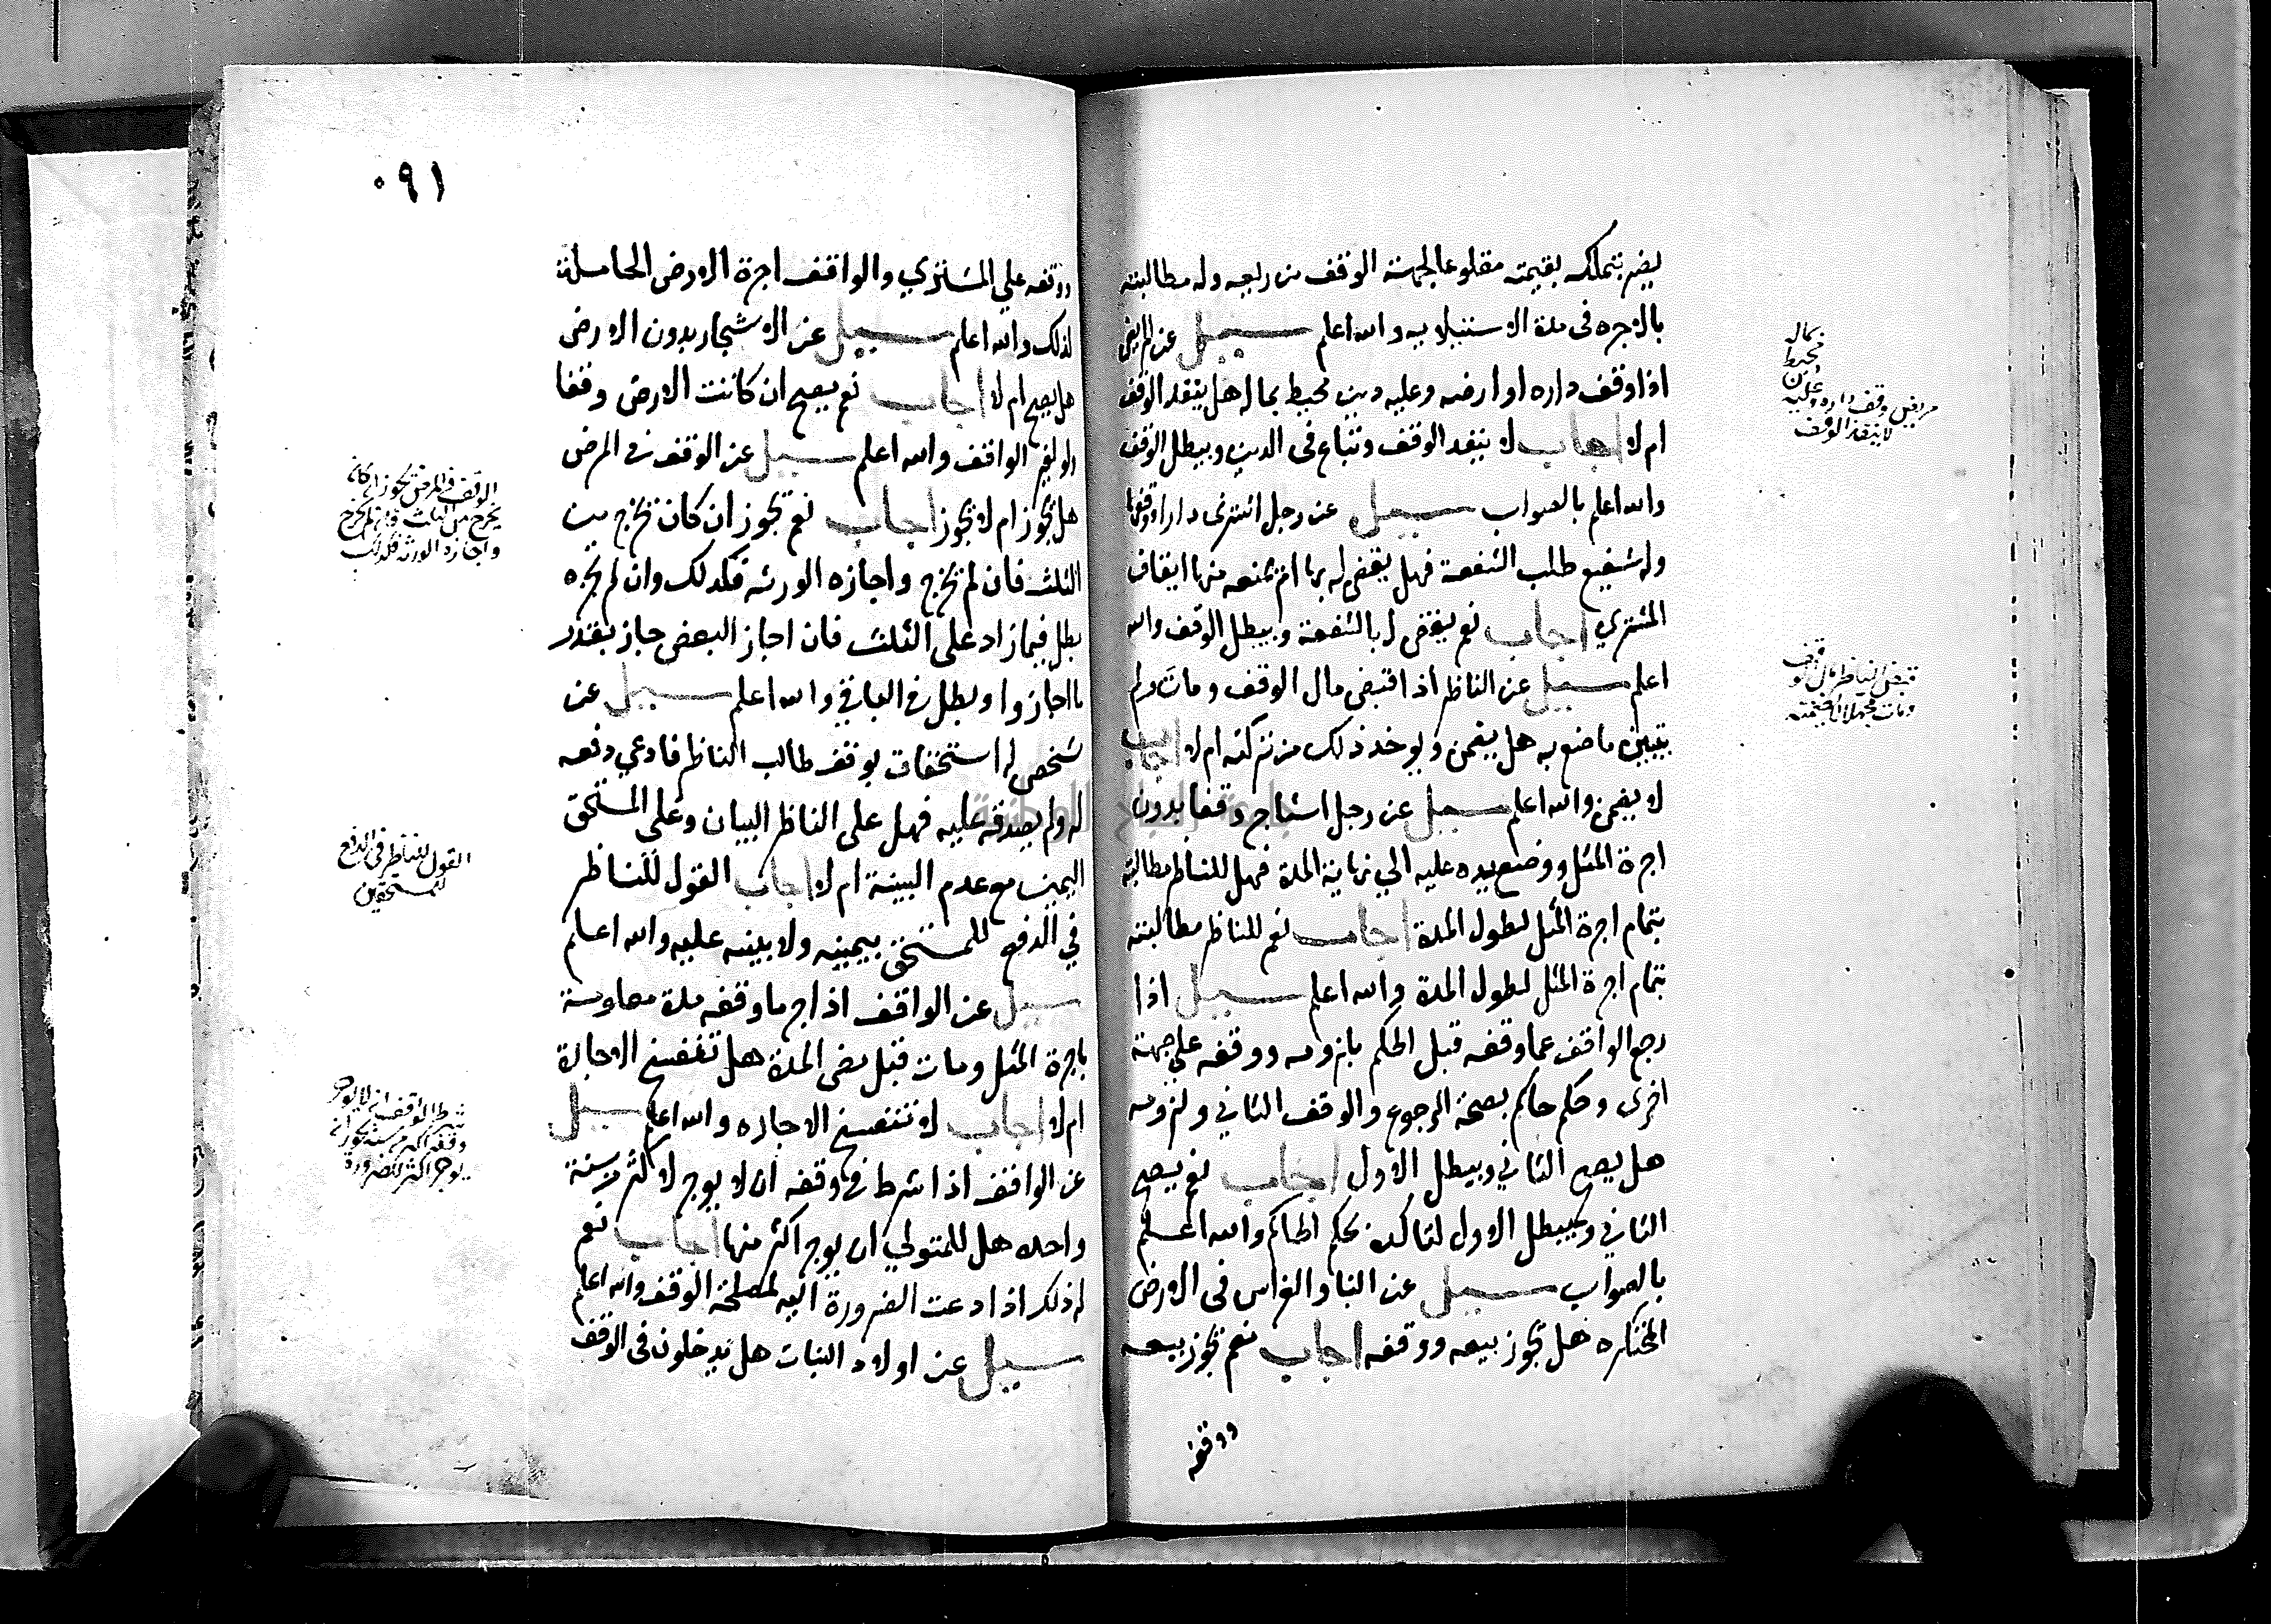 يضر يتملكه بقيمته مقلوعا لجهة الوقف من ريعه وله مطالبته
بالاجره فى مدة الاستيلا به والله اعلم سيل عن المريض
اذا وقف داره او ارضه وعليه دين محيط بماله هل ينفد الوقف
ام لا اجاب لا ينفد الوقف وتباع فى الدين ويبطل الوقف
والله اعلم بالصواب سيل عن رجل اشترى دارا ووقفها
وله شفيع طلب الشفعة فهل يقضى له بها ام تمنعه منها ايقاف
المشتري اجاب نعم يقضى له بالشفعة ويبطل الوقف والله
اعلم سيل عن الناظر اذا قبض مال الوقف ومات ولم
يتبين ما صنع به هل يضمن ويوخد ذلك من تركته ام لا اجاب
لا يضمن والله اعلم سيل عن رجل استاجر وقفا بدون
اجرة المثل ووضع يده عليه الي نهاية المدة فهل للناظر مطالبته
بتمام اجرة المثل لطول المدة اجاب نعم للناظر مطالبته
بتمام اجرة المثل لطول المدة والله اعلم سيل اذا
رجع الواقف عما وقفه قبل الحكم بلزومه ووقفه على جهة
اخرى وحكم حاكم بصحة الرجوع والوقف الثاني ولزومه
هل يصح الثاني ويبطل الاول اجاب نعم يصح
الثاني ويبطل الاول لتاكده بحكم الحاكم والله اعلم
بالصواب سيل عن البنا والغراس فى الارض
المحتكره هل يجوز بيعه ووقفه اجاب نعم يجوز بيعه
ووقفه
مريض وقف داره وعليه
دين
محيط
بماله
لا ينفذ الوقف
قبض الناظر مال الوقف
ومات مجهلا لا
٠٩١
ووقفه علي المشتري والواقف اجرة الارض الحاملة
لذلك والله اعلم سيل عن الاشجار بدون الارض
هل يصح ام لا اجاب نعم يصح ان كانت الارض وقفا
ولو لغير الواقف والله اعلم سيل عن الوقف فى المرض
هل يجوز ام لا يجوز اجاب نعم يجوز ان كان يخرج من
الثلث فان لم يخرج واجازه الورثه فكدلك وان لم يجزه
بطل فيما زاد على الثلث فان اجاز البعض جاز بقدر
ما اجازوا وبطل فى الباقي والله اعلم سيل عن
شخص له استحقاق بوقف طالب الناظر فادعي دفعه
له ولم يصدقه عليه فهل على الناظر البيان وعلى المستحق
اليمين مع عدم البينة ام لا اجاب القول للناظر
في الدفع للمستحق بيمينه ولا بينه عليه والله اعلم
سيل عن الواقف اذا اجر ما وقفه مدة معلومة
باجرة المثل ومات قبل مضى المدة هل تنفسخ الاجارة
ام لا اجاب لا تنفسخ الاجاره والله اعلم سيل
عن الواقف اذا شرط في وقفه ان لا يوجر لاكثر من سنة
واحده هل للمتولي ان يوجر اكثر منها اجاب نعم
له ذلك اذا دعت الضرورة اليه لمصلحة الوقف والله اعلم
سيل عن اولاد البنات هل يدخلون فى الوقف
الوقف فى المرض يجوز ان كان
يخرج من الثلث فان لم يخرج
واجازه الورثة فكذلك
القول للناظر فى الدفع
للمستحقين
شرط الواقف ان لا يوجر
وقفه اكثر من سنة يجوز ان
يوجر اكثر للضرورة